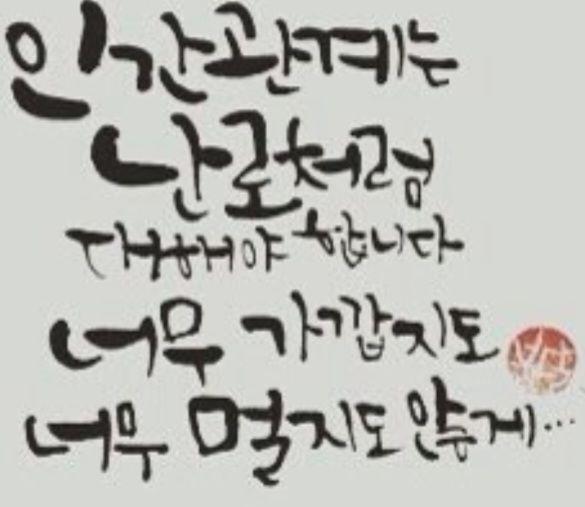 인간관계는
난로처럼
대해야 합니다
너무 가깝지도
너무 멀지도 않게...